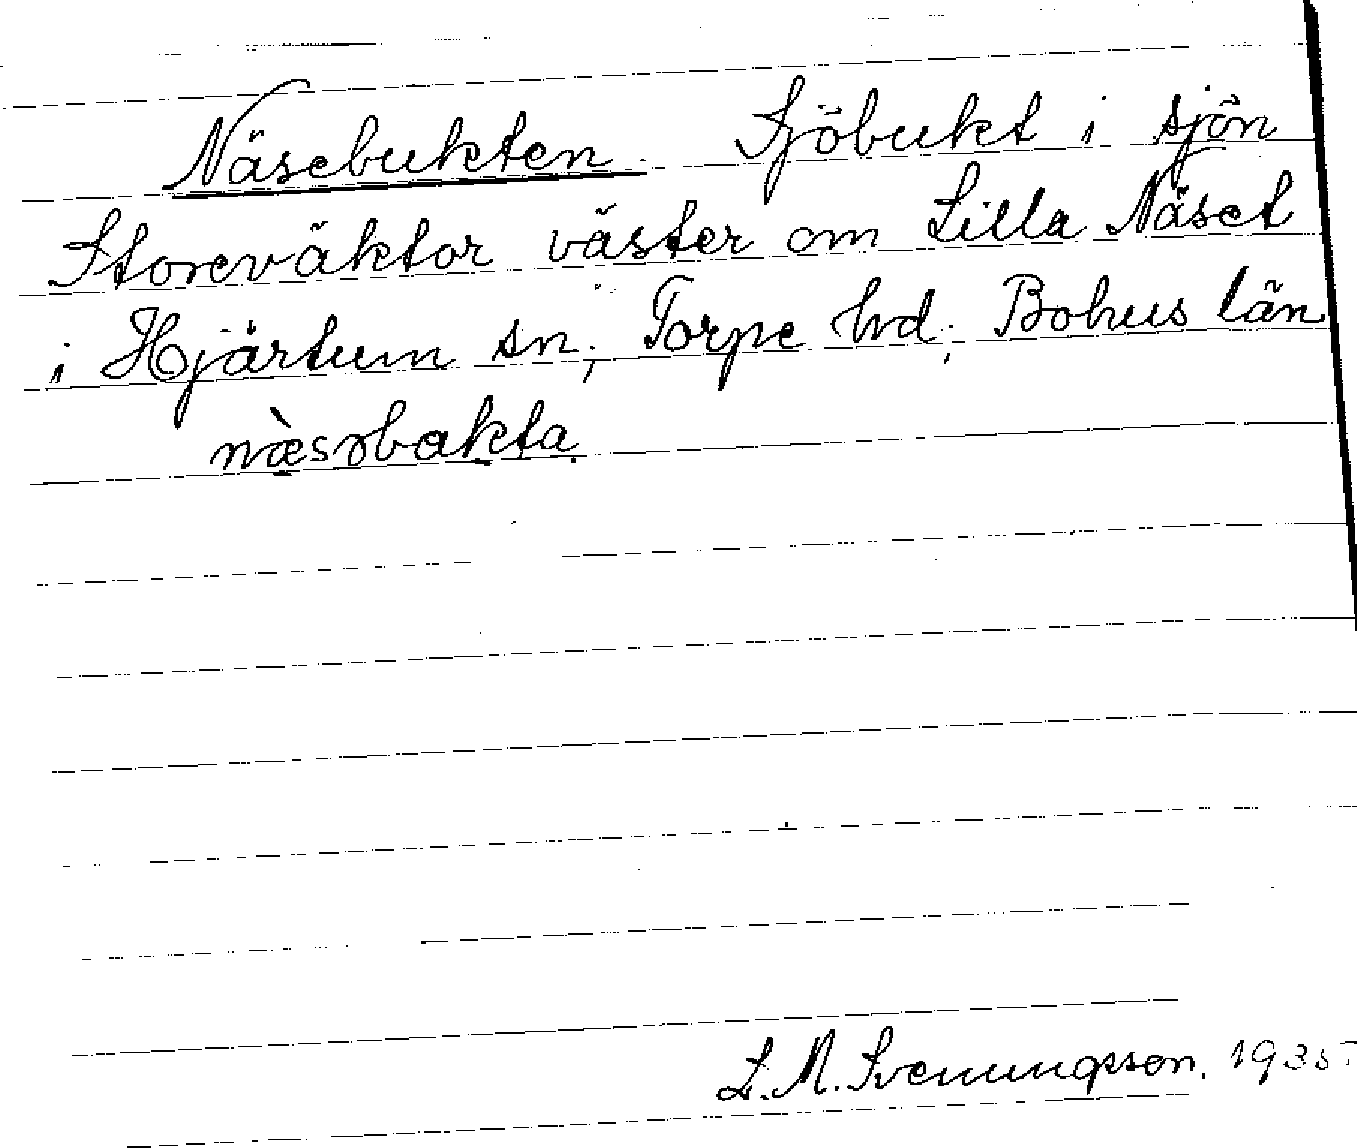 Näsebukten. Sjöbukt i sjön
Storeväktor väster om Lilla Näset
i Hjärtum sn; Torpe hd; Bohus län
næ̀sɔbakta.
L. M. Svenungsson. 1935